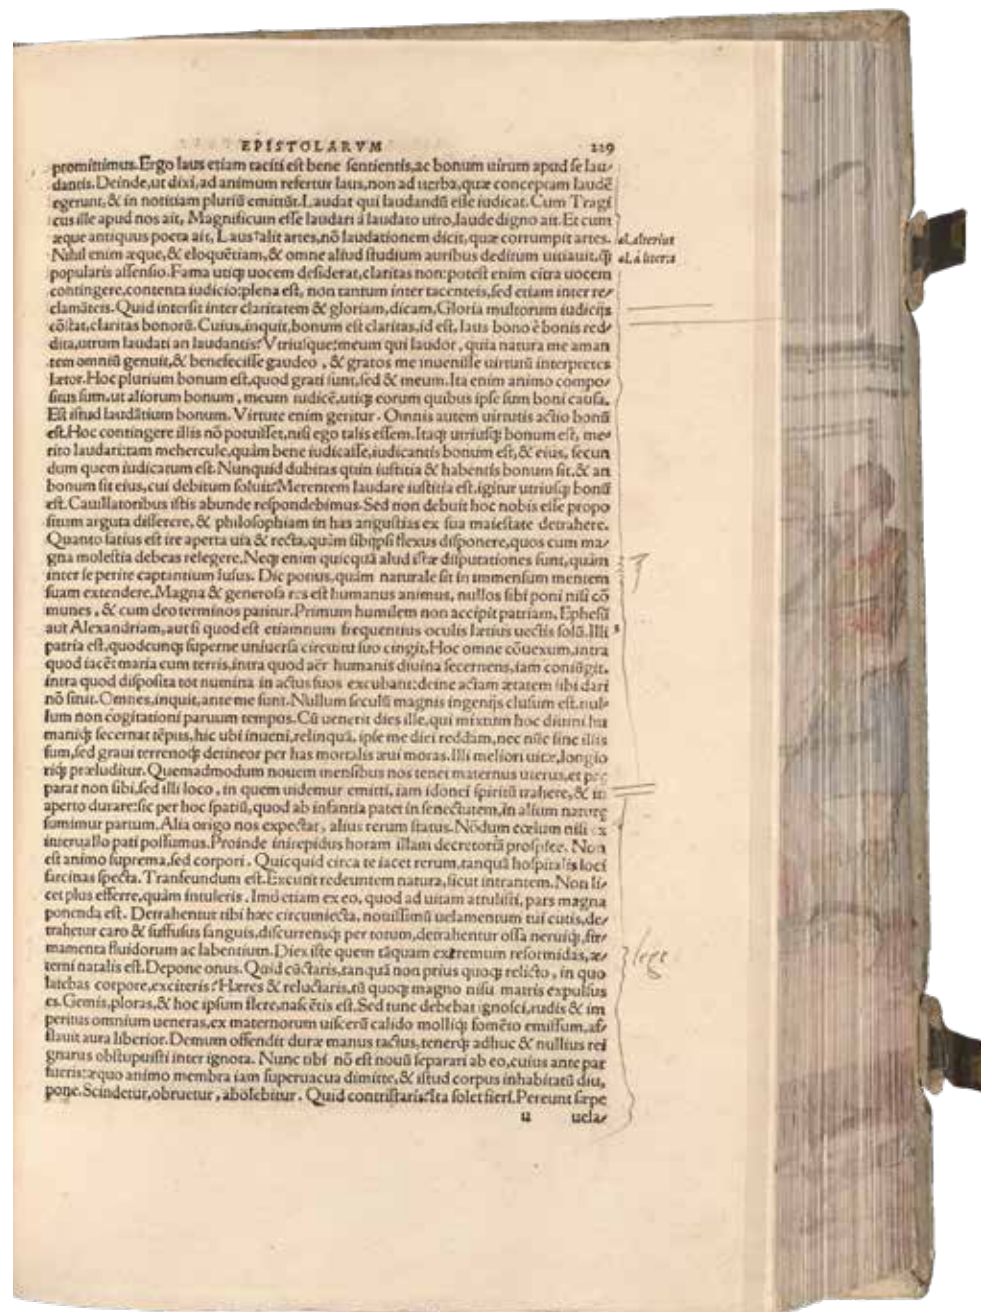 EPISTOLARVM 229
promittimus.Ergo laus etiam taciti est bene sentientis,ac bonum uirum apud se lau-
dantis.Deinde,ut dixi,ad animum refertur laus,non ad uerba,quæ conceptam laudē
egerunt,& in notitiam pluriū emittūt.Laudat qui laudandū esse iudicat.Cum Tragi
cus ille apud nos ait, Magnificum esse laudari à laudato uiro,laude digno ait.Et cum
æque antiquus poeta ait, Laus alit artes,nō laudationem dicit,quæ corrumpit artes. al.alterius
Nihil enim æque,& eloquētiam,& omne aliud studium auribus deditum uitiauit,q̄
popularis assensio.Fama utiq; uocem desiderat,claritas non:potest enim citra uocem
contingere,contenta iudicio:plena est, non tantum inter tacenteis,sed etiam inter re-
clamāteis.Quid intersit inter claritatem & gloriam,dicam.Gloria multorum iudicijs
cōstat,claritas bonorū.Cuius,inquit,bonum est claritas,id est,laus bono è bonis red-
dita,utrum laudati an laudantis?Vtriusque:meum qui laudor, quia natura me aman
tem omniū genuit,& benefecisse gaudeo, & gratos me inuenisse uirtutū interpretes
lætor.Hoc plurium bonum est,quod grati sunt,sed & meum.Ita enim animo compo-
situs sum,ut aliorum bonum, meum iudicē,utiq; eorum quibus ipse sum boni causa.
Est istud laudātium bonum. Virtute enim geritur. Omnis autem uirtutis actio bonū
est.Hoc contingere illis nō potuisset,nisi ego talis essem.Itaq; utriusq; bonum est, me-
rito laudari:tam mehercule,quàm bene iudicasse,iudicantis bonum est,& eius, secun
dum quem iudicatum est.Nunquid dubitas quin iustitia & habentis bonum sit,& an
bonum sit eius,cui debitum soluit?Merentem laudare iustitia est,igitur utriusq; bonū
est.Cauillatoribus istis abunde respondebimus.Sed non debuit hoc nobis esse propo
situm arguta disserere, & philosophiam in has angustias ex sua maiestate detrahere.
Quanto satius est ire aperta uia & recta,quàm sibiipsi flexus disponere,quos cum ma-
gna molestia debeas relegere.Neq; enim quicquā alud istæ disputationes sunt,quàm
inter se perite captantium lusus. Dic potius,quàm naturale sit in immensum mentem
suam extendere.Magna & generosa res est humanus animus, nullos sibi poni nisi cō
munes, & cum deo terminos patitur.Primum humilem non accipit patriam, Ephesū
aut Alexandriam,aut si quod est etiamnum frequentius oculis lætius uectis solū.Illi
patria est,quodcunq; superne uniuersa circuitu suo cingit.Hoc omne cōuexum,intra
quod iacēt maria cum terris,intra quod aër humanis diuina secernens,iam coniūgit,
intra quod disposita tot numina in actus suos excubant:deine actam ætatem sibi dari
nō sinit.Omnes,inquit,ante me sunt.Nullum seculū magnis ingenijs clusum est.nul-
lum non cogitationi paruum tempus.Cū uenerit dies ille,qui mixtum hoc diuini hu
maniq; secernat tēpus,hic ubi inueni,relinquā, ipse me diei reddam,nec nūc sine illis
sum,sed graui terrenoq; detineor per has mortalis æui moras.Illi meliori uitæ,longio
riq; præluditur.Quemadmodum nouem mensibus nos tenet maternus uterus,et præ
parat non sibi,sed illi loco, in quem uidemur emitti, iam idonei spiritū trahere, & in
aperto durare:sic per hoc spatiū,quod ab infantia patet in senectutem,in alium naturę
sumimur partum.Alia origo nos expectat, alius rerum status. Nōdum cœlum nisi ex
interuallo pati possumus.Proinde intrepidus horam illam decretoriā prospice. Non
est animo suprema,sed corpori. Quicquid circa te iacet rerum,tanquā hospitalis loci
sarcinas specta.Transeundum est.Excutit redeuntem natura,sicut intrantem. Non li-
cet plus efferre,quàm intuleris. Imò etiam ex eo, quod ad uitam attulisti, pars magna
ponenda est. Detrahentur tibi hæc circumiecta, nouissimū uelamentum tui cutis,de-
trahetur caro & suffusus sanguis,discurrensq; per totum,detrahentur ossa neruiq;,fir-
mamenta fluidorum ac labentium. Dies iste quem tāquam extremum reformidas,æ-
terni natalis est.Depone onus.Quid cūctaris,tanquā non prius quoq; relicto, in quo
latebas corpore,exciteris?Hæres & reluctaris,tū quoq; magno nisu matris expulsus
es.Gemis,ploras,& hoc ipsum flere,nascētis est.Sed tunc debebat ignosci,rudis & im
peritus omnium ueneras,ex maternorum uiscerū calido molliq; fomēto emissum,af-
flauit aura liberior.Demum offendit duræ manus tactus,tenerq; adhuc & nullius rei
gnarus obstupuisti inter ignota. Nunc tibi nō est nouū separari ab eo,cuius ante par
fueris:æquo animo membra iam superuacua dimitte,& istud corpus inhabitatū diu,
pone.Scindetur,obruetur, abolebitur. Quid contristaris?Ita solet fieri.Pereunt sæpe
u uela-